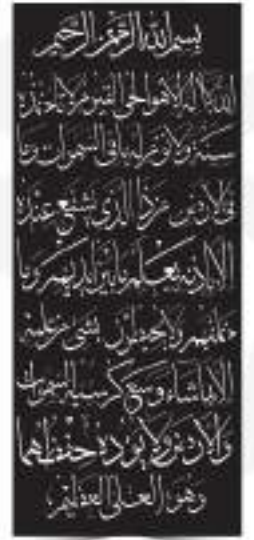 بسم الله الرحمن الرحيم
الله لا إله إلا هو الحي القيوم لا تأخذه
سنة ولا نوم له ما في السموات وما
في الأرض من ذا الذي يشفع عنده
إلا بإذنه يعلم ما بين أيديهم وما
خلفهم ولا يحيطون بشيء من علمه
إلا بما شاء وسع كرسيه السموات
والأرض ولا يؤده حفظهما
وهو العلي العظيم